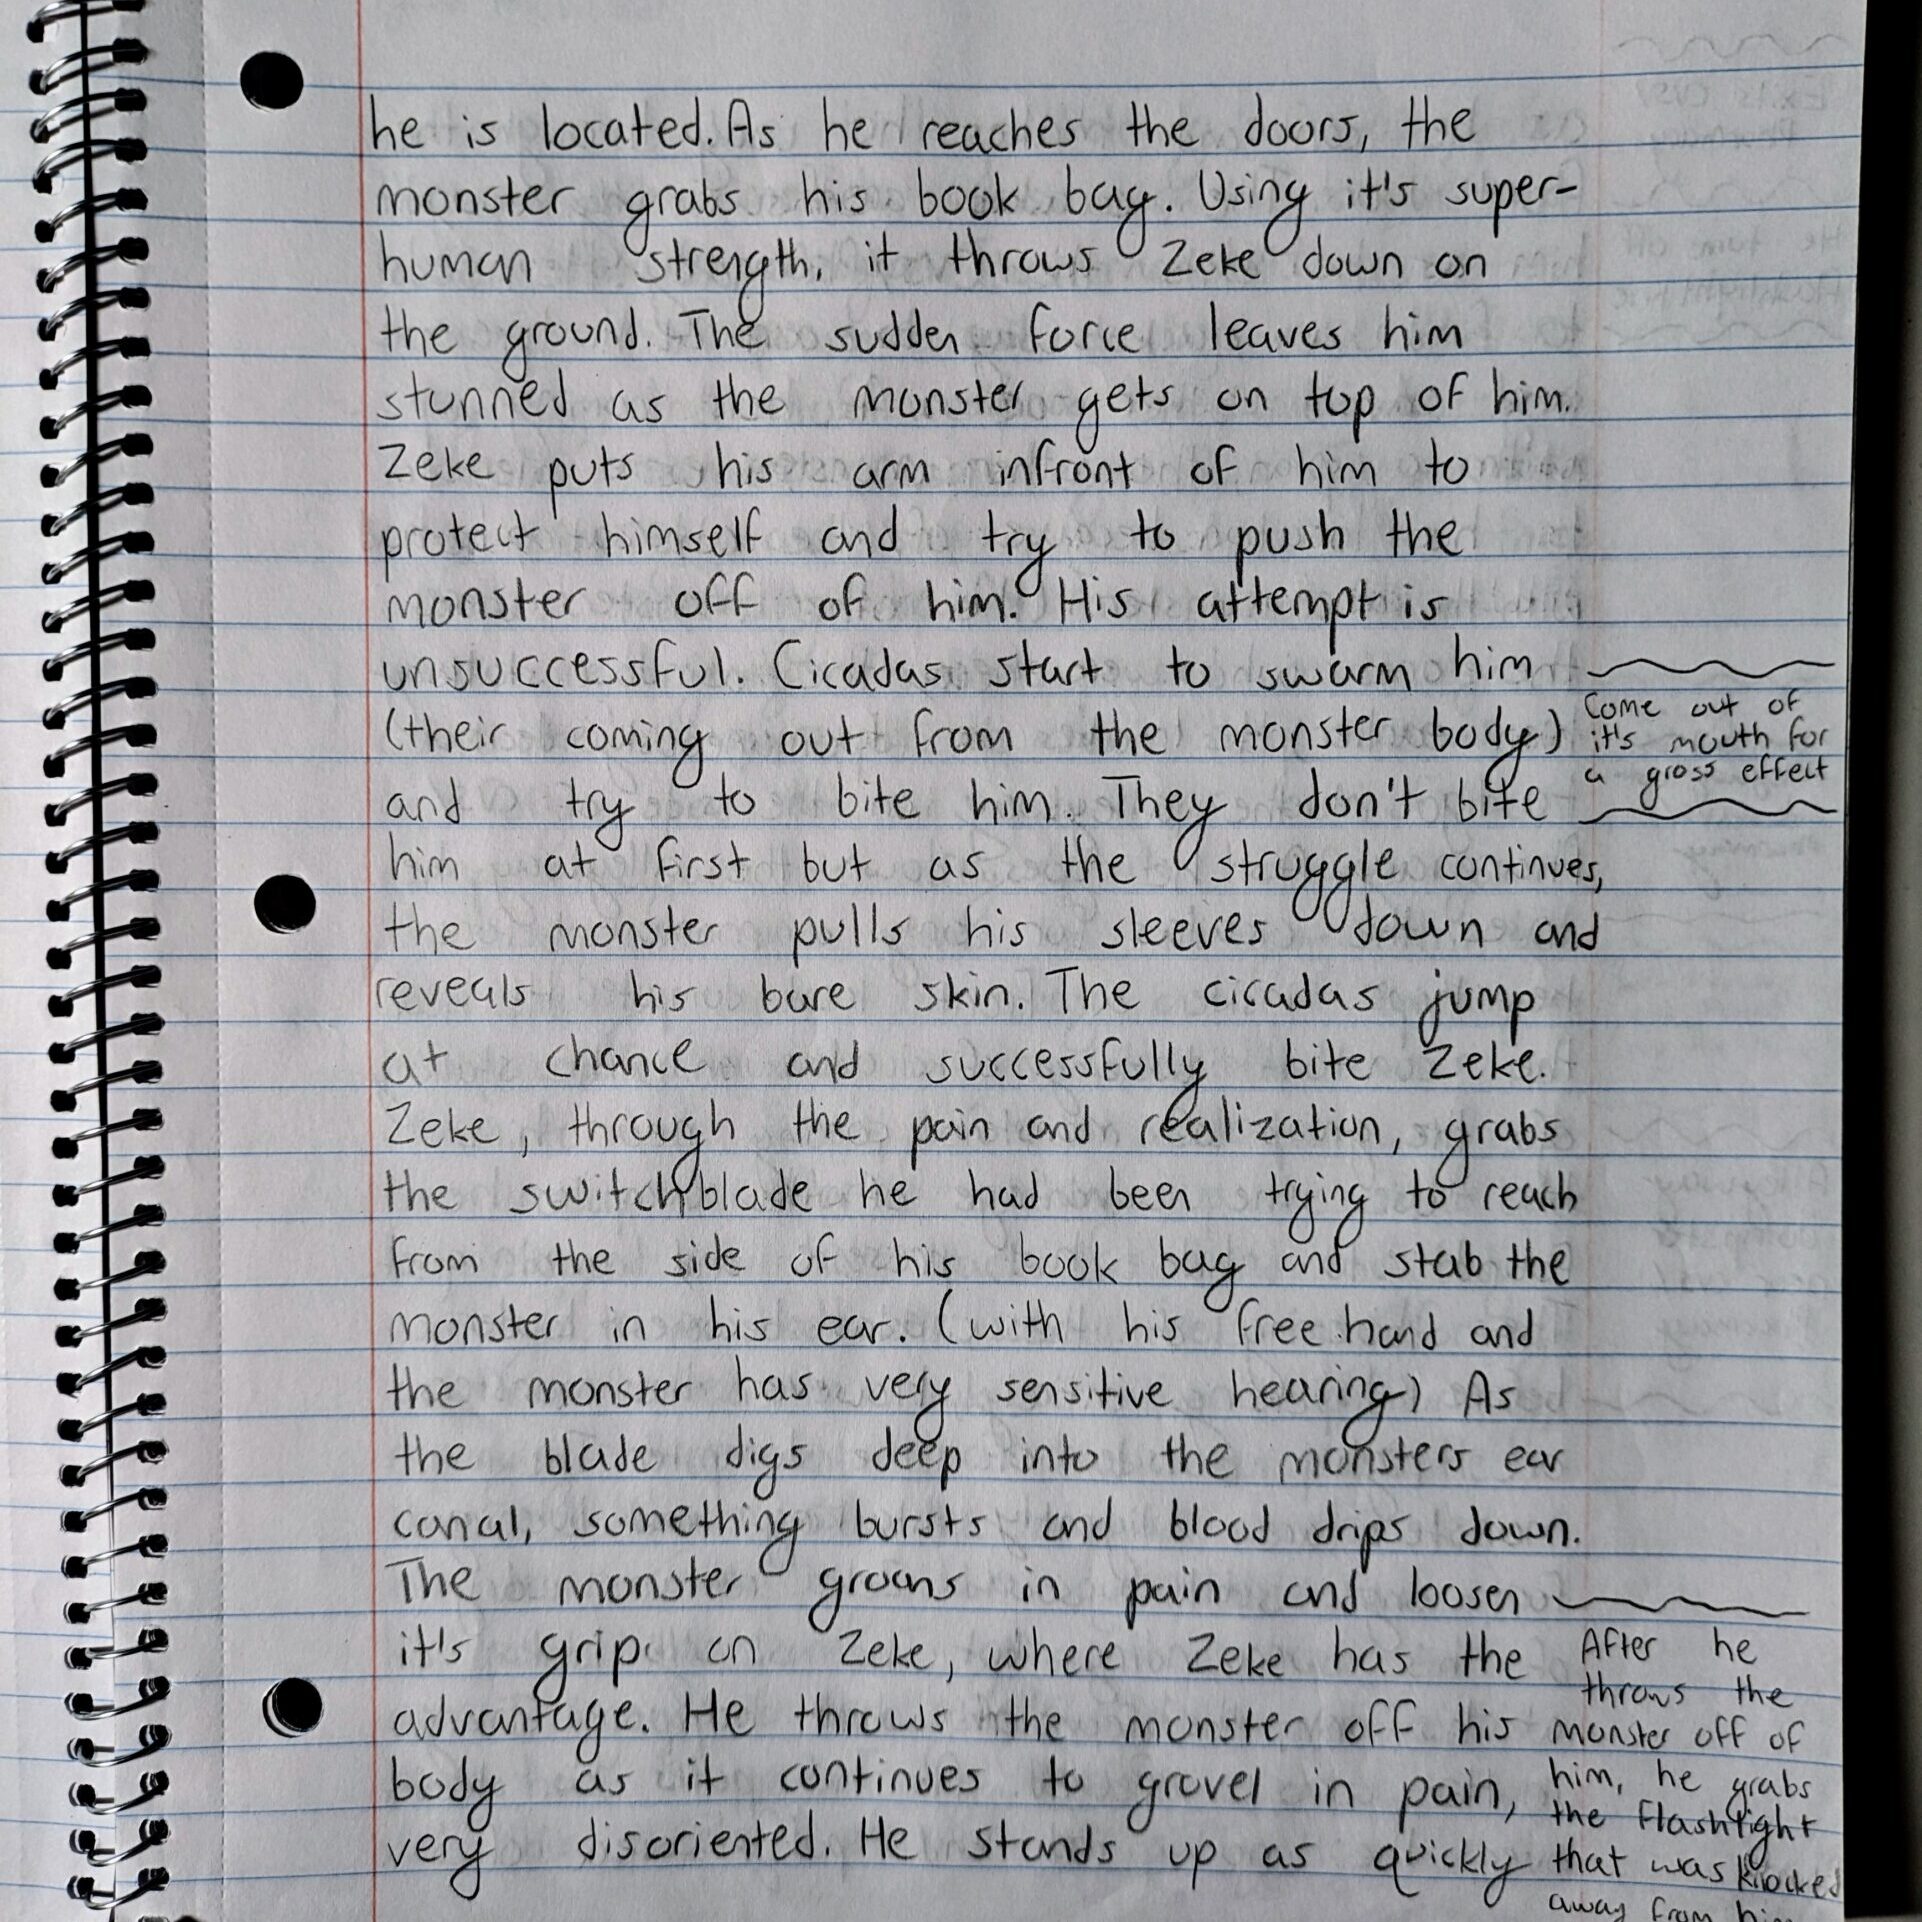 he is located. As he reaches the doors, the
monster grabs his book bag. Using it's super-
human strength, it throws Zeke down on
the ground. The sudden force leaves him
stunned as the monster gets on top of him.
Zeke puts his arm infront of him to
protect himself and try to push the
monster off of him. His attempt is
unsuccessful. Cicadas start to swarm him
(their coming out from the monster body)
and try to bite him. They don't bite
him at first but as the struggle continues,
the monster pulls his sleeves down and
reveals his bare skin. The cicadas jump
at chance and successfully bite Zeke.
Zeke, through the pain and realization, grabs
the switchblade he had been trying to reach
from the side of his book bag and stab the
monster in his ear. (with his free hand and
the monster has very sensitive hearing) As
the blade digs deep into the monsters ear
canal, something bursts and blood drips down.
The monster groans in pain and loosen
it's grip on Zeke, where Zeke has the
advantage. He throws the monster off his
body as it continues to grovel in pain,
very disoriented. He stands up as quickly
Come out of
it's mouth for
a gross effect
After he
throws the
monster off of
him, he grabs
the flashlight
that was knocked
away from him